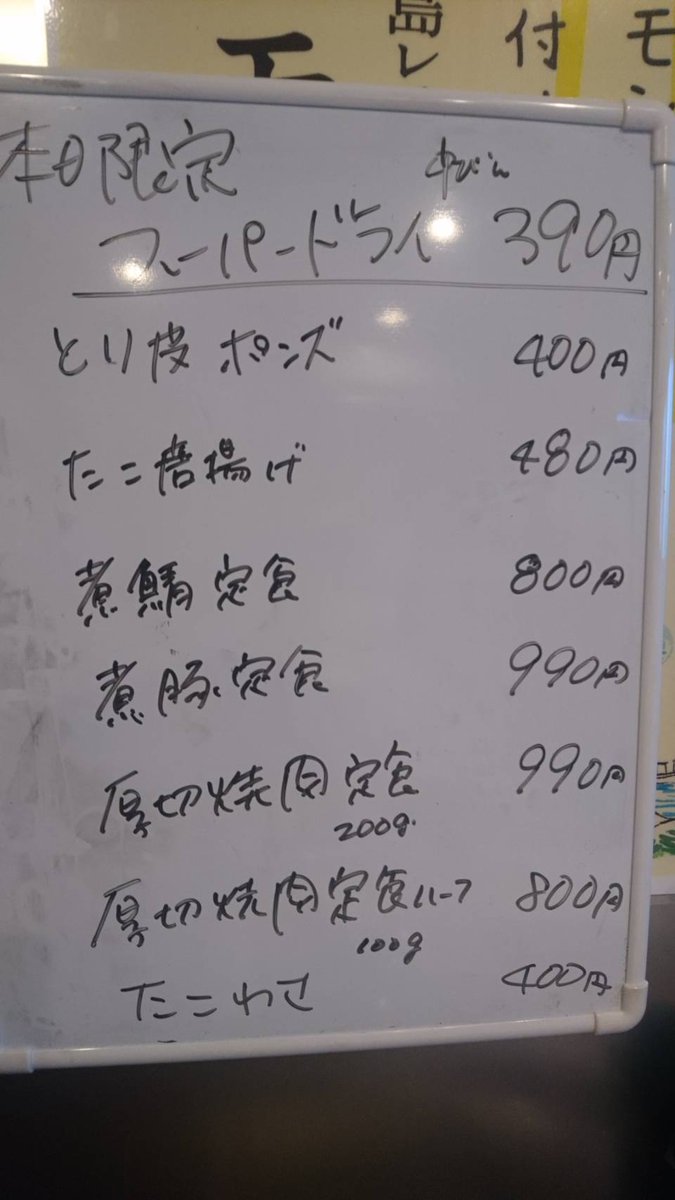 島レ
付
モン
本日限定 中びん
スーパードライ 390円
とり皮ポンズ 400円
たこ唐揚げ 480円
煮鯖定食 800円
煮豚定食 990円
厚切焼肉定食 990円
200g.
厚切焼肉定食ハーフ 800円
100g
たこわさ 400円